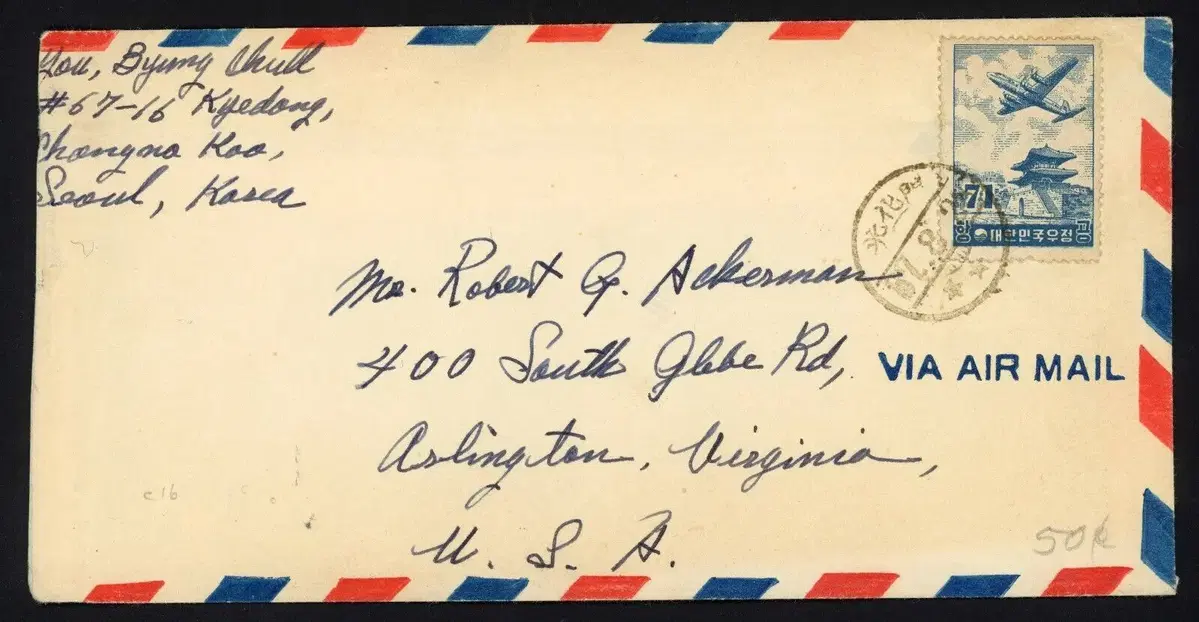 You, Byung Chull
#67-16 Kyedong,
Chongno Koo,
Seoul, Korea
71
항공
대한민국우정
Mr. Robert G. Ackerman
400 South Glebe Rd,
VIA AIR MAIL
Arlington, Virginia,
U. S. A.
c16
50¢